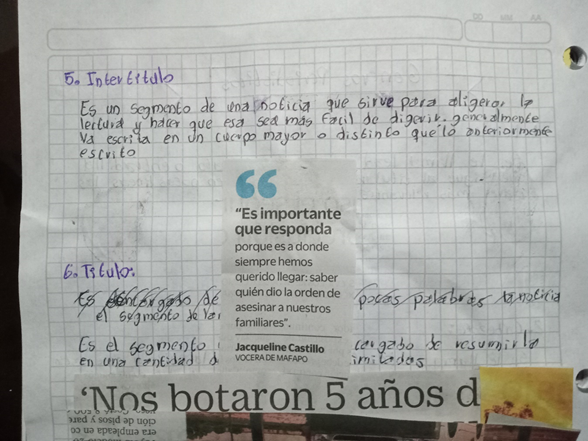 AA MM DD
5. Intertitulo
Es un segmento de una noticia que sirve para aligerar la
lectura y hacer que esa sea más facil de digerir. generalmente
Va escrita en un cuerpo mayor o distinto que lo anteriormente
escrito
“Es importante
que responda
porque es a donde
siempre hemos
querido llegar: saber
quién dio la orden de
asesinar a nuestros
familiares”.
Jacqueline Castillo
VOCERA DE MAFAPO
6. Titulo:
Es de pocas palabras la noticia
el segmento de
Es el segmento cargabo de resumir la
en una cantidad
‘Nos botaron 5 años d
era empleada en co
ción de pisos y pare